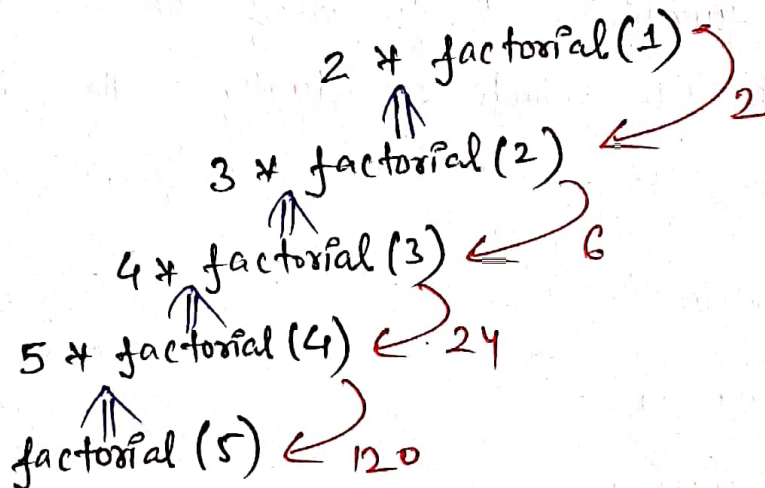 2 * factorial(1)
2
3 * factorial(2)
6
4 * factorial(3)
5 * factorial(4)
24
factorial(5)
120